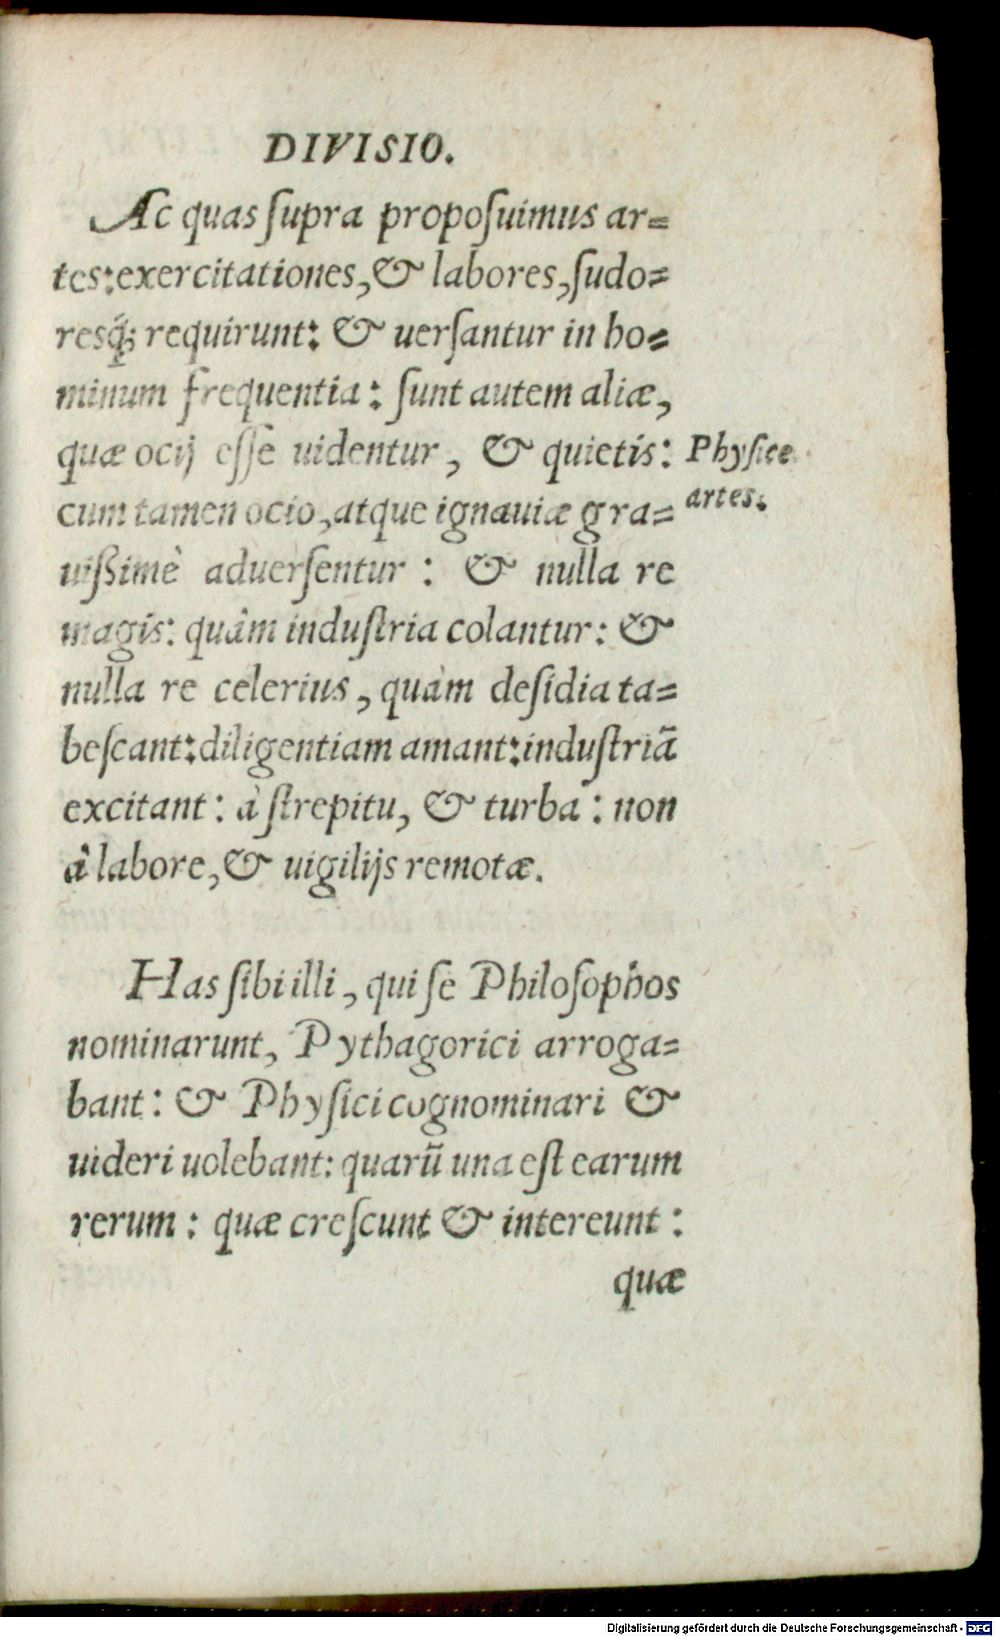 DIVISIO.
Ac quas ſupra propoſuimus ar=
tes: exercitationes, & labores, ſudo=
resq́; requirunt: & uerſantur in ho=
minum frequentia: ſunt autem aliæ,
quæ ocij eſſe uidentur, & quietis:
Phyſice
artes.
cum tamen ocio, atque ignauiæ gra=
uißimè aduerſentur: & nulla re
magis: quàm induſtria colantur: &
nulla re celerius, quàm deſidia ta=
beſcant: diligentiam amant: induſtriã
excitant: à ſtrepitu, & turba: non
à labore, & uigilijs remotæ.
Has ſibi illi, qui ſe Philoſophos
nominarunt, Pythagorici arroga=
bant: & Phyſici cognominari &
uideri uolebant: quarũ una eſt earum
rerum: quæ creſcunt & intereunt:
quæ
Digitalisierung gefördert durch die Deutsche Forschungsgemeinschaft - DFG